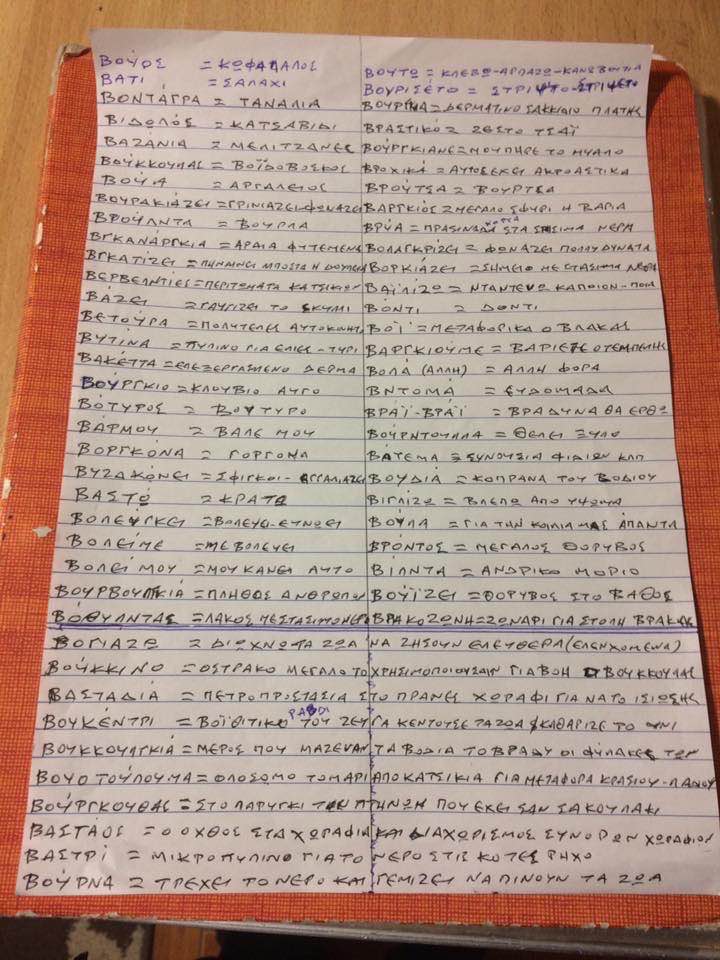 ΒΟΥΟΣ = ΚΩΦΑΛΑΛΟΣ
ΒΑΤΙ = ΣΑΛΑΧΙ
ΒΟΝΤΑΓΡΑ = ΤΑΝΑΛΙΑ
ΒΙΔΟΛΟΣ = ΚΑΤΣΑΒΙΔΙ
ΒΑΖΑΝΙΑ = ΜΕΛΙΤΖΑΝΕΣ
ΒΟΥΚΚΟΥΛΑΣ = ΒΟΪΔΟΒΟΣΚΟΣ
ΒΟΥΑ = ΑΡΓΑΛΕΙΟΣ
ΒΟΥΡΑΚΙΑΖΕΙ = ΓΡΙΝΙΑΖΕΙ-ΦΩΝΑΖΕΙ
ΒΡΟΥΛΝΤΑ = ΒΟΥΡΛΑ
ΒΓΚΑΝΑΡΓΚΙΑ = ΑΡΑΙΑ ΦΥΤΕΜΕΝΑ
ΒΓΚΑΤΙΖΕΙ = ΠΗΝΑΙΝΕΙ ΜΠΟΣΤΑ Η ΔΟΥΛΕΙΑ
ΒΕΡΒΕΛΝΤΙΕΣ = ΠΕΡΙΤΩΜΑΤΑ ΚΑΤΣΙΚΩΝ
ΒΑΖΕΙ = ΓΑΥΓΙΖΕΙ ΤΟ ΣΚΥΛΙ
ΒΕΤΟΥΡΑ = ΠΟΛΥΤΕΛΕΣ ΑΥΤΟΚΙΝΗΤΟ
ΒΥΤΙΝΑ = ΠΥΛΙΝΟ ΓΙΑ ΕΛΙΕΣ-ΤΥΡΙ
ΒΑΚΕΤΤΑ = ΕΠΕΞΕΡΓΑΣΜΕΝΟ ΔΕΡΜΑ
ΒΟΥΡΓΚΙΟ = ΚΛΟΥΒΙΟ ΑΥΓΟ
ΒΟΤΥΡΟΣ = ΒΟΥΤΥΡΟ
ΒΑΡΜΟΥ = ΒΑΛΕ ΜΟΥ
ΒΟΡΓΚΟΝΑ = ΓΟΡΓΟΝΑ
ΒΥΖΑΚΩΝΕΙ = ΣΦΙΓΚΟΙ-ΑΓΓΑΛΙΑΖΕΙ
ΒΑΣΤΩ = ΚΡΑΤΩ
ΒΟΛΕΥΓΚΕΙ = ΒΟΛΕΥΕΙ-ΕΥΝΟΕΙ
ΒΟΛΕΙΜΕ = ΜΕ ΒΟΛΕΥΕΙ
ΒΟΛΕΙ ΜΟΥ = ΜΟΥ ΚΑΝΕΙ ΑΥΤΟ
ΒΟΥΡΒΟΥΛΚΙΑ = ΠΛΗΘΟΣ ΑΝΘΡΩΠΩΝ
ΒΟΘΥΛΝΤΑΣ = ΛΑΚΟΣ ΜΕ ΣΤΑΣΙΜΟ ΝΕΡΟ
ΒΟΥΤΩ = ΚΛΕΒΩ-ΑΡΠΑΖΩ-ΚΑΝΩ ΒΟΥΤΙΑ
ΒΟΥΡΙΣΕΤΟ = ΣΤΡΙΨΤΟ-ΣΤΡΙΨΕΤΟ
ΒΟΥΡΓΙΑ = ΔΕΡΜΑΤΙΚΟ ΣΑΚΚΙΔΙΟ ΠΛΑΤΗΣ
ΒΡΑΣΤΙΚΟ = ΖΕΣΤΟ ΤΣΑΪ
ΒΟΥΡΓΚΙΑΝΕ = ΜΟΥ ΠΗΡΕ ΤΟ ΜΥΑΛΟ
ΒΡΟΧΙΚΑ = ΑΥΤΟΣ ΕΧΕΙ ΑΚΡΟΑΣΤΙΚΑ
ΒΡΟΥΤΣΑ = ΒΟΥΡΤΣΑ
ΒΑΡΓΚΙΟΣ = ΜΕΓΑΛΟ ΣΦΥΡΙ Η ΒΑΡΙΑ
ΒΡΥΑ = ΠΡΑΣΙΝΑΔΑ ΧΟΡΤΑ ΣΤΑ ΣΤΑΣΙΜΑ ΝΕΡΑ
ΒΟΛΑΓΚΡΙΖΕΙ = ΦΩΝΑΖΕΙ ΠΟΛΥ ΔΥΝΑΤΑ
ΒΟΡΚΙΑΖΕΙ = ΣΗΜΕΙΟ ΜΕ ΣΤΑΣΙΜΑ ΝΕΡΑ
ΒΑΪΛΙΖΩ = ΝΤΑΝΤΕΥΩ ΚΑΠΟΙΟΝ-ΠΟΙΑ
ΒΟΝΤΙ = ΔΟΝΤΙ
ΒΟΪ = ΜΕΤΑΦΟΡΙΚΑ Ο ΒΛΑΚΑΣ
ΒΑΡΓΚΙΟΥΜΕ = ΒΑΡΙΕΤΕ Ο ΤΕΜΠΕΛΗΣ
ΒΟΛΑ (ΑΛΛΗ) = ΑΛΛΗ ΦΟΡΑ
ΒΝΤΟΜΑ = ΕΥΔΟΜΑΔΑ
ΒΡΑΪ-ΒΡΑΪ = ΒΡΑΔΥΝΑ ΘΑ ΕΡΘΩ
ΒΟΥΡΝΤΟΥΛΛΑ = ΘΕΛΕΙ ΞΥΛΟ
ΒΑΤΕΜΑ = ΣΥΝΟΥΣΙΑ ΦΙΔΙΩΝ ΚΛΠ
ΒΟΥΔΙΑ = ΚΟΠΡΑΝΑ ΤΟΥ ΒΟΔΙΟΥ
ΒΙΓΛΙΖΩ = ΒΛΕΠΩ ΑΠΟ ΥΨΩΜΑ
ΒΟΥΛΑ = ΓΙΑ ΤΗΝ ΚΟΙΛΙΑ ΜΑΣ ΑΠΑΝΤΑ
ΒΡΟΝΤΟΣ = ΜΕΓΑΛΟΣ ΘΟΡΥΒΟΣ
ΒΙΛΝΤΑ = ΑΝΔΡΙΚΟ ΜΟΡΙΟ
ΒΟΥΪΖΕΙ = ΘΟΡΥΒΟΣ ΣΤΟ ΒΑΘΟΣ
ΒΡΑΚΟΖΩΝΗ = ΖΩΝΑΡΙ ΓΙΑ ΣΤΟΛΗ ΒΡΑΚΑΣ
ΒΟΓΙΑΖΩ = ΔΙΩΧΝΩ ΤΑ ΖΩΑ ΝΑ ΖΗΣΟΥΝ ΕΛΕΥΘΕΡΑ (ΕΛΕΝΧΟΜΕΝΑ)
ΒΟΥΚΚΙΝΟ = ΟΣΤΡΑΚΟ ΜΕΓΑΛΟ ΤΟ ΧΡΗΣΙΜΟΠΟΙΟΥΣΑΝ ΓΙΑ ΒΟΗ Ο ΒΟΥΚΚΟΥΛΑΣ
ΒΑΣΤΑΔΙΑ = ΠΕΤΡΟΠΡΟΣΤΑΣΙΑ ΣΤΟ ΠΡΑΝΕΣ ΧΩΡΑΦΙ ΓΙΑ ΝΑ ΤΟ ΙΣΙΩΣΗΣ
ΒΟΥΚΕΝΤΡΙ = ΒΟΪΘΙΤΙΚΟ ΡΑΒΔΙ ΤΟΥ ΖΕΥΓΑ ΚΕΝΤΟΥΣΕ ΤΑ ΖΩΑ & ΚΑΘΑΡΙΖΕ ΤΟ ΥΝΙ
ΒΟΥΚΚΟΥΛΓΚΙΑ = ΜΕΡΟΣ ΠΟΥ ΜΑΖΕΥΑΝ ΤΑ ΒΟΔΙΑ ΤΟ ΒΡΑΔΥ ΟΙ ΦΥΛΑΚΕΣ ΤΩΝ
ΒΟΥΟΤΟΥΛΟΥΜΑ = ΟΛΟΣΩΜΟ ΤΟΜΑΡΙ ΑΠΟ ΚΑΤΣΙΚΙΑ ΓΙΑ ΜΕΤΑΦΟΡΑ ΚΡΑΣΙΟΥ-ΛΑΔΙΟΥ
ΒΟΥΡΓΚΟΥΘΑΣ = ΣΤΟ ΛΑΡΥΓΚΙ ΤΩΝ ΠΤΗΝΩΝ ΠΟΥ ΕΧΕΙ ΣΑΝ ΣΑΚΟΥΛΑΚΙ
ΒΑΣΤΑΟΣ = Ο ΟΧΘΟΣ ΣΤΑ ΧΩΡΑΦΙΑ ΚΑΙ ΔΙΑΧΩΡΙΣΜΟΣ ΣΥΝΟΡΩΝ ΧΩΡΑΦΙΟΥ
ΒΑΣΤΡΙ = ΜΙΚΡΟ ΠΥΛΙΝΟ ΓΙΑ ΤΟ ΝΕΡΟ ΣΤΙΣ ΚΟΤΕΣ ΡΗΧΟ
ΒΟΥΡΝΑ = ΤΡΕΧΕΙ ΤΟ ΝΕΡΟ ΚΑΙ ΓΕΜΙΖΕΙ ΝΑ ΠΙΝΟΥΝ ΤΑ ΖΩΑ